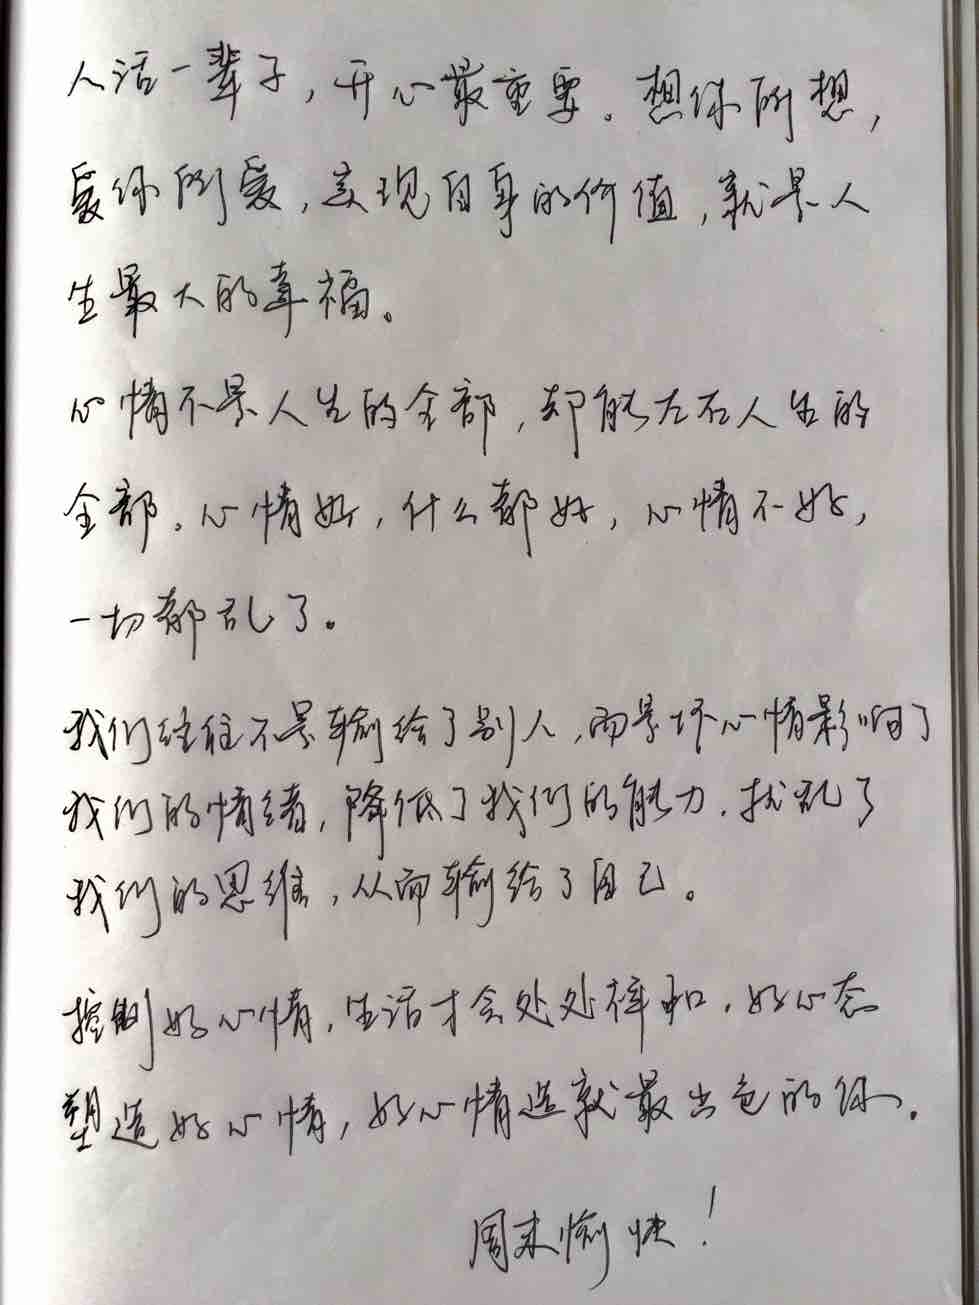 人活一辈子，开心最重要。想你所想，
爱你所爱，实现自身的价值，就是人
生最大的幸福。
心情不是人生的全部，却能左右人生的
全部。心情好，什么都好，心情不好，
一切都乱了。
我们往往不是输给了别人，而是坏心情影响了
我们的情绪，降低了我们的能力，扰乱了
我们的思维，从而输给了自己。
控制好心情，生活才会处处祥和，好心态
塑造好心情，好心情造就最出色的你。
周末愉快！